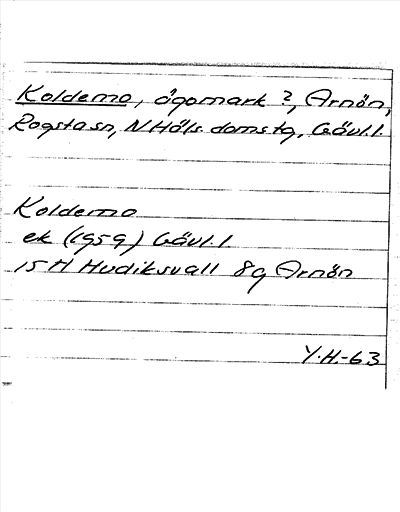 Koldemo, ägomark ?, Arnön,
Rogsta sn, N Häls. doms tg, Gävl. l.
Koldemo
ek (1959) Gävl. l
15 H Hudiksvall 8g Arnön
Y.H.-63